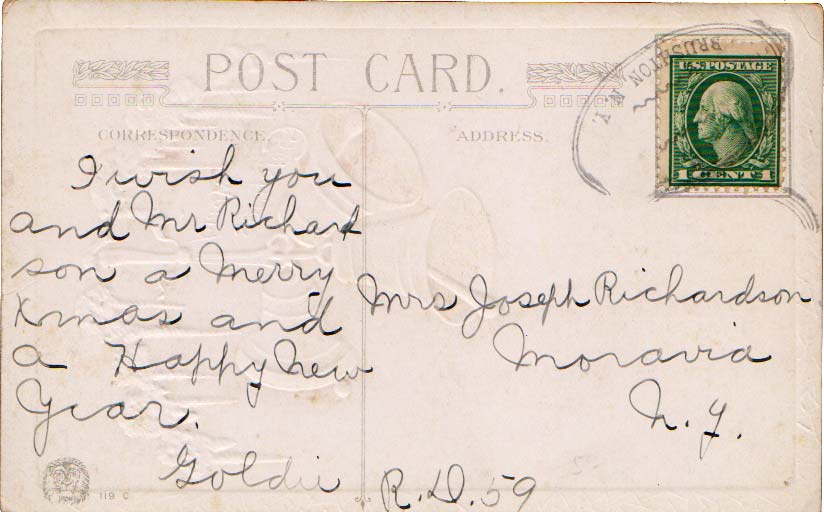 POST CARD.
CORRESPONDENCE.
ADDRESS.
BRUSHTON N.Y.
U.S. POSTAGE
1 CENT 1
I wish you
and Mr Richard
son a Merry
Xmas and
a Happy New
Year.
Goldie
Mrs Joseph Richardson
Moravia
N.Y.
R.D. 59
119 C